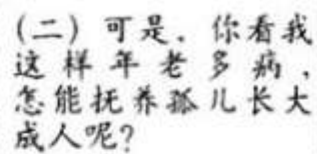 (二) 可是，你看我
这样年老多病，
怎能抚养孤儿长大
成人呢？